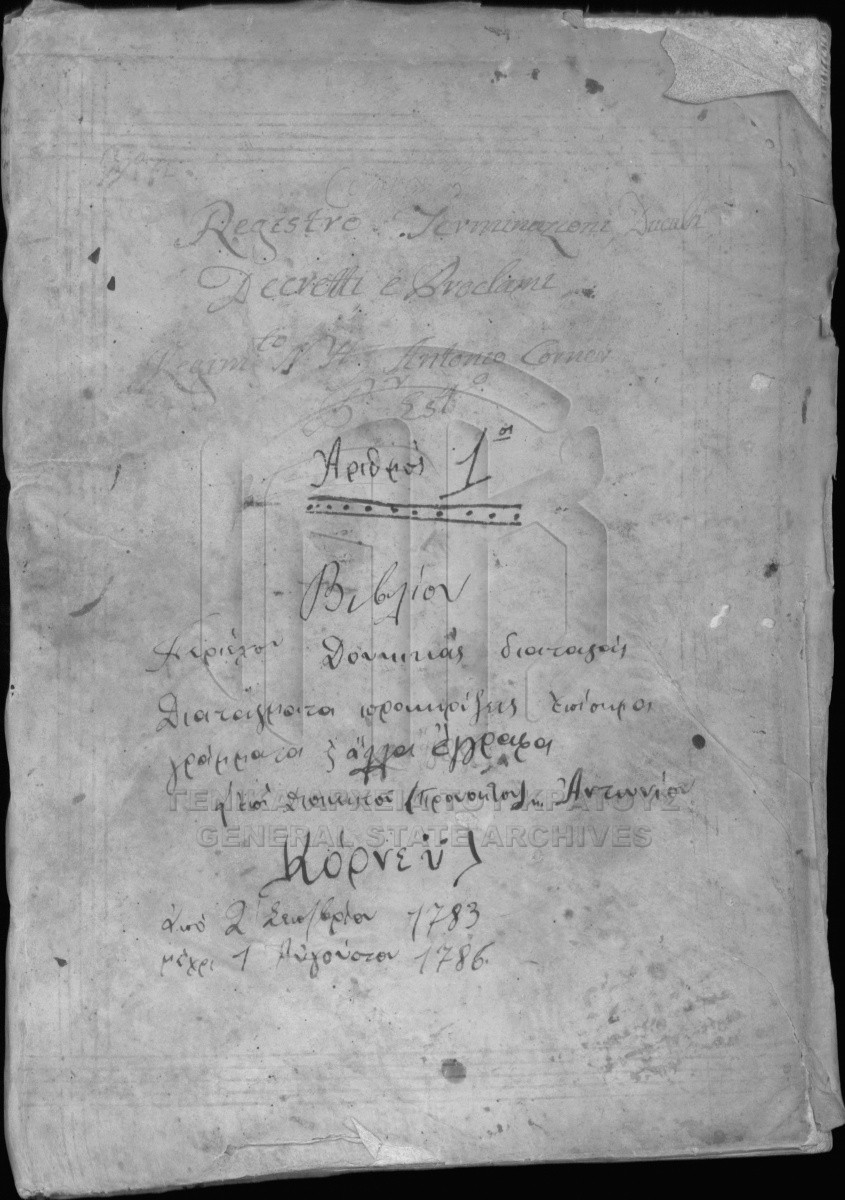 Registro Terminazioni Ducali
Decretti e Proclami
Regim.to N. H. Antonio Corner
Ἀριθμὸς 1ος
Βιβλίον
Περιέχον Δουκικὰς διαταγὰς
Διατάγματα προκηρύξεις ἐπίσημα
γράμματα & ἄλλα ἔγγραφα
ἐπὶ Διοικητοῦ (Προνοητοῦ) κ. Ἀντωνίου
Κόρνερ
ἀπὸ 2 Σεπτ/βρίου 1783
μέχρι 1 Αὐγούστου 1786.
ΓΕΝΙΚΑ ΑΡΧΕΙΑ ΤΟΥ ΚΡΑΤΟΥΣ
GENERAL STATE ARCHIVES